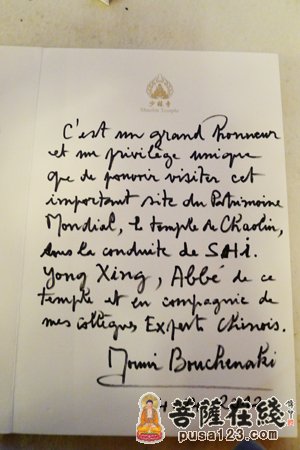 少林寺
Shaolin Temple
C'est un grand honneur
et un privilège unique
que de pouvoir visiter cet
important site du Patrimoine
Mondial, le temple de Chaolin,
sous la conduite de SHi.
Yong Xing, Abbé de ce
temple et en compagnie de
mes collègues Experts Chinois.
Mounir Bouchenaki
菩薩在线
pusa123.com